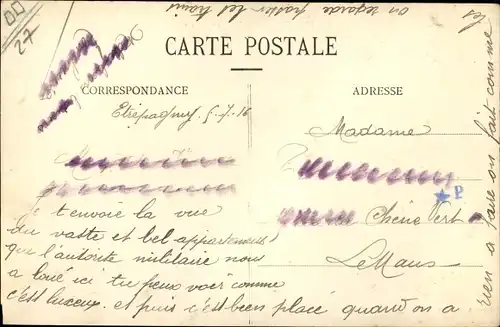 on regarde passer les trains
27
CARTE POSTALE
CORRESPONDANCE
ADRESSE
Etrépagny 5-7-16
Madame
P
Chêne Vert
Le Mans
Je t'envoie la vue
du vaste et bel appartement
que l'autorité militaire nous
a loué ici tu peux voir comme
c'est luxeux. et puis c'est bien placé quand on a
rien a faire on fait comme
les